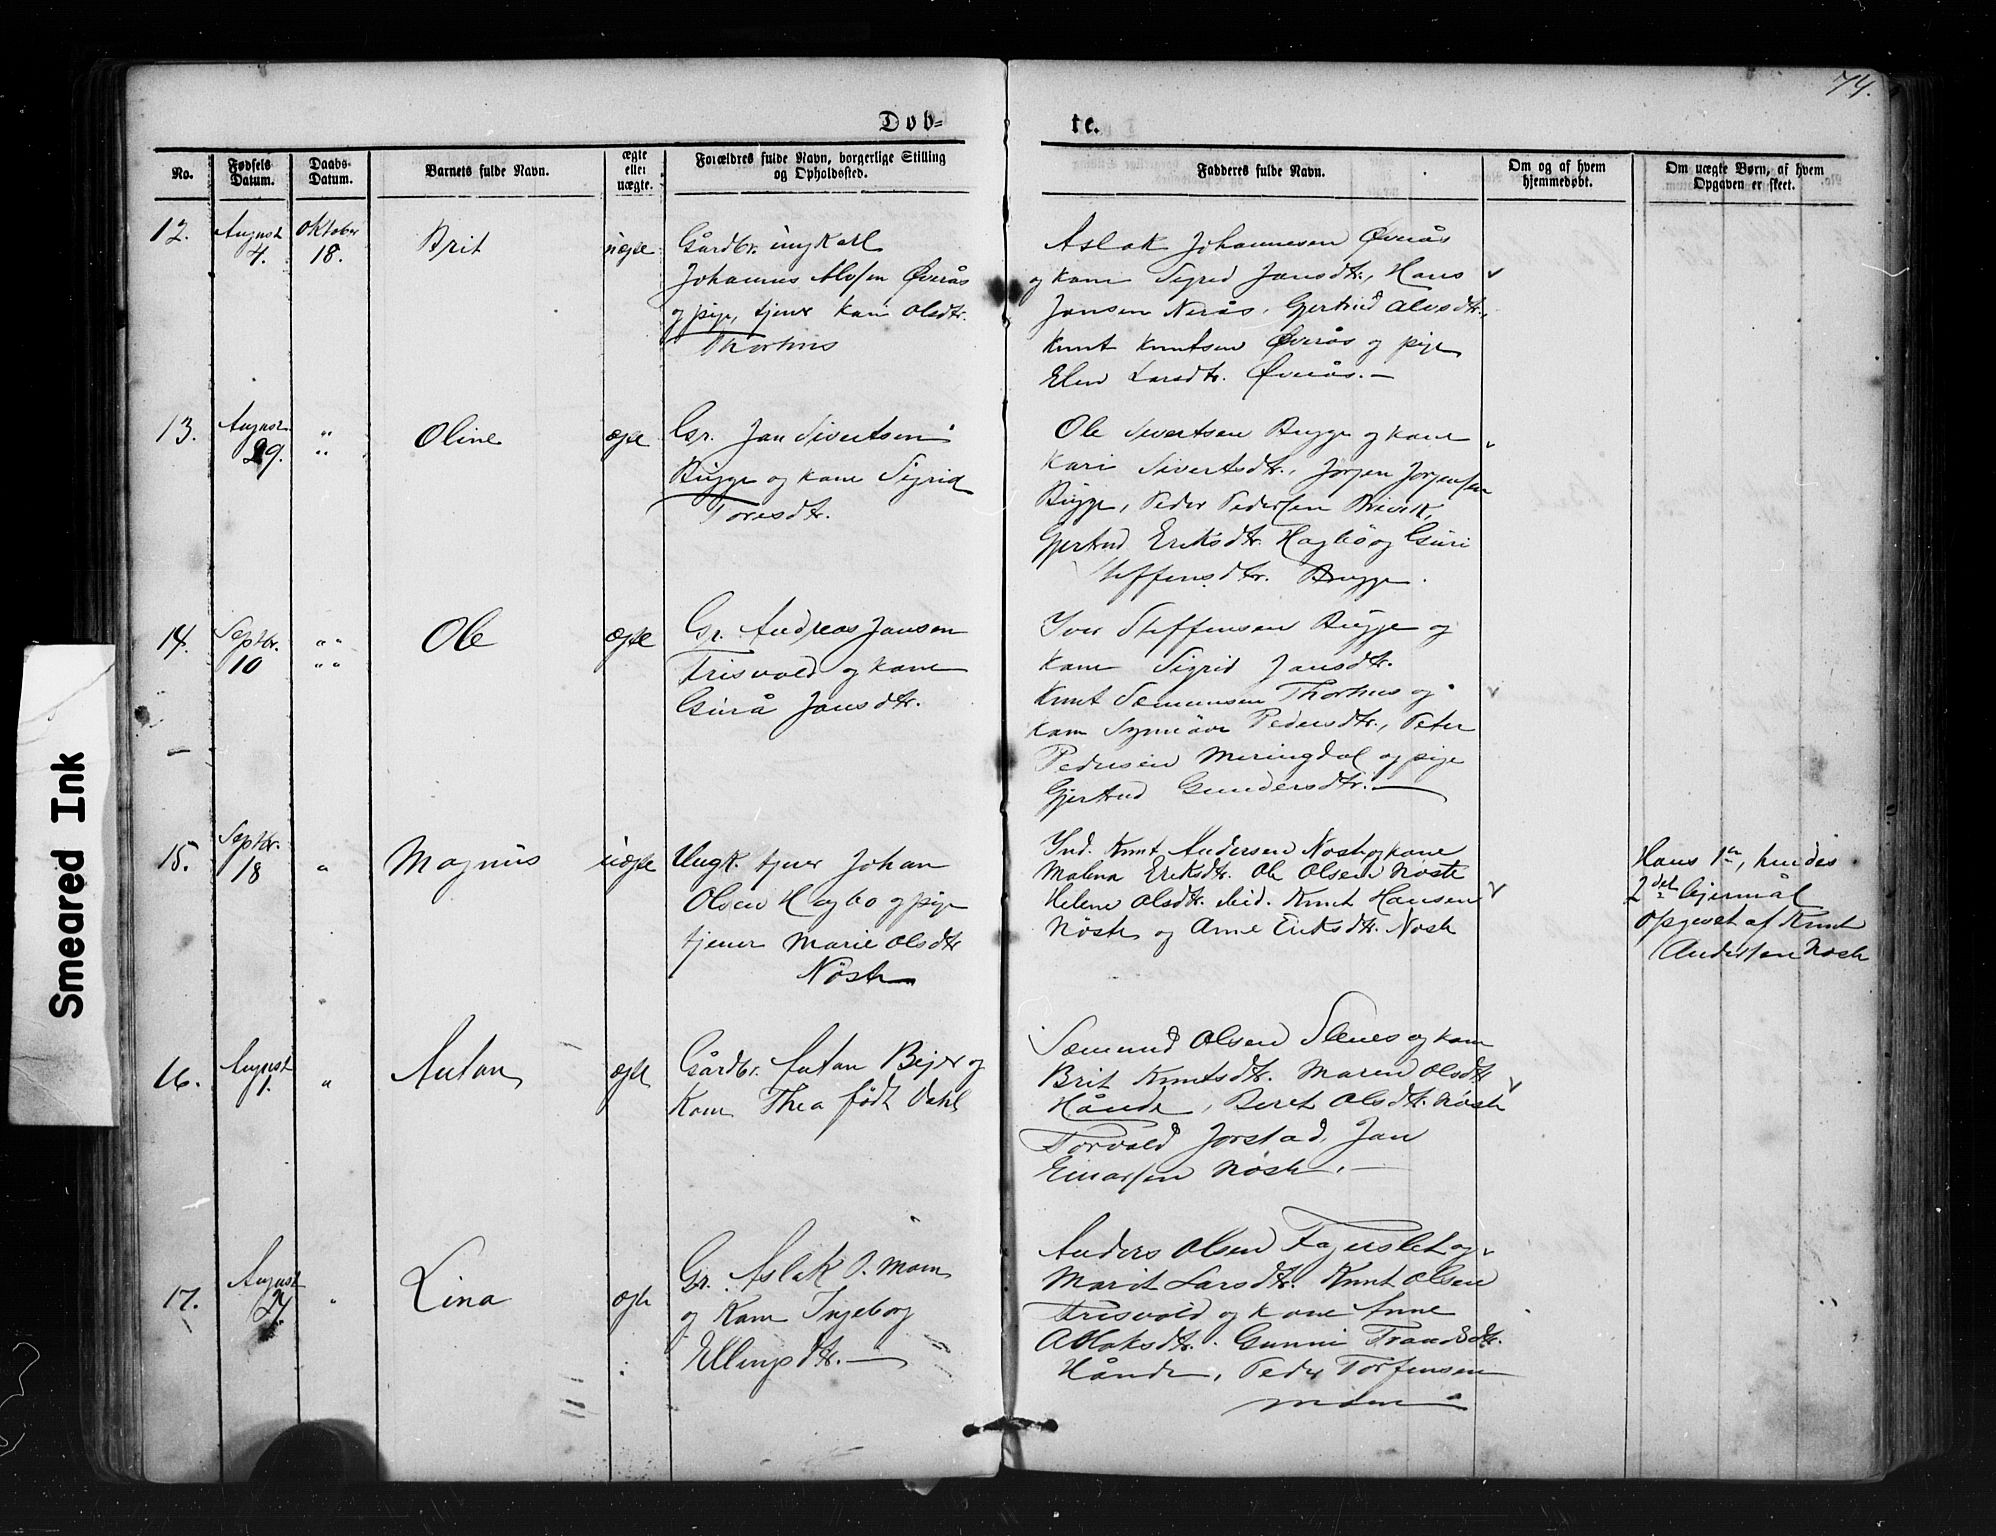 74.
Døb-
te.
No.
Fødsels Datum.
Daabs-Datum.
Barnets fulde Navn.
ægte eller uægte.
Forældres fulde Navn, borgerlige Stilling og Opholdssted.
Fadderes fulde Navn.
Om og af hvem hjemmedøbt.
Om uægte Børn, af hvem Opgaven er skeet.
12.
August 4.
Oktober 18.
Brit
uægte
Gårdbr. ungkarl
Johannes Olsen Øverås
og pige, tjener Kari Olsdtr.
Thorhus
Aslak Johannesen Øverås
og kone Sigrid Jansdtr., Hans
Jansen Nerås, Gjertrud Olsdtr.
Knut Knutsen Øverås og pige
Elen Larsdtr. Øverås. —
13.
August 29.
" "
Oline
ægte
Gr. Jan Sivertsen
Bugge og kone Sigrid
Toresdtr.
Ole Sivertsen Bugge og kone
Kari Sivertsdtr., Jørgen Jørgensen
Bugge, Peder Pedersen Brevik,
Gjertrud Eriksdtr. Hagbø og Guri
Steffensdtr. Bugge.
14.
Septbr. 10
" "
" "
Ole
ægte
Gr. Andreas Jansen
Frisvold og kone
Gurå Jansdtr.
Iver Steffensen Bugge og
kone Sigrid Jansdtr.
Knut Sæmunsen Thorhus og
kone Synnøve Pedersdtr., Peter
Pedersen Meringdal og pige
Gjertrud Gundersdtr. —
15.
Septbr. 18
"
Magnus
uægte
Ungk. tjener Johan
Olsen Hagbø og pige
tjener Marie Olsdtr
Nøste
Ind. Knut Andersen Nøste og kone
Malena Eriksdtr. Ole Olsen Nøste
Helene Olsdtr. ibid. Knut Hansen
Nøste og Anne Eriksdtr. Nøste
Hans 1ste, hendes
2det lejermål
Opgivet af Knut
Andersen Nøste
16.
August 1.
"
Anton
ægte
Gårdbr. Anton Bejer og
Kone Thea født Dahl
Sæmund Olsen Slenes og kone
Brit Knutsdtr. Maren Olsdtr
Hånde, Beret Olsdtr. Nøste
Torvald Jorstad, Jan
Einarsen Nøste. —
17.
August 27.
"
Lina
ægte
Gr. Aslak O. Moen
og Kone Ingeborg
Ellingsdtr. —
Anders Olsen Fagerslet og
Marit Larsdtr. Knut Olsen
Frisvold og kone Anne
Aslaksdtr. Gunni Trondsdtr.
Hånde, Peder Torfinsen
Moen
Smeared Ink